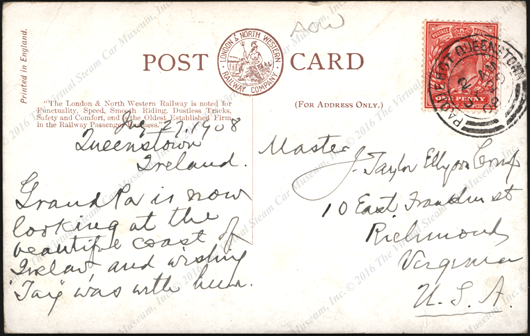 AOW
Printed in England.
POST CARD
LONDON & NORTH WESTERN
RAILWAY COMPANY
"The London & North Western Railway is noted for
Punctuality, Speed, Smooth Riding, Dustless Tracks,
Safety and Comfort, and is the Oldest Established Firm
in the Railway Passenger Business."
(FOR ADDRESS ONLY.)
ONE PENNY
PACKET QUEENSTOWN
27. 1908
Queenstown
Ireland.
GrandPa is now
looking at the
beautiful coast of
and wishing
'Tay' was with him.
Master
J. Taylor Ellyson
10 East Franklin St
Richmond
Virginia
U.S.A.
© 2016 The Virtual Steam Car Museum, Inc.